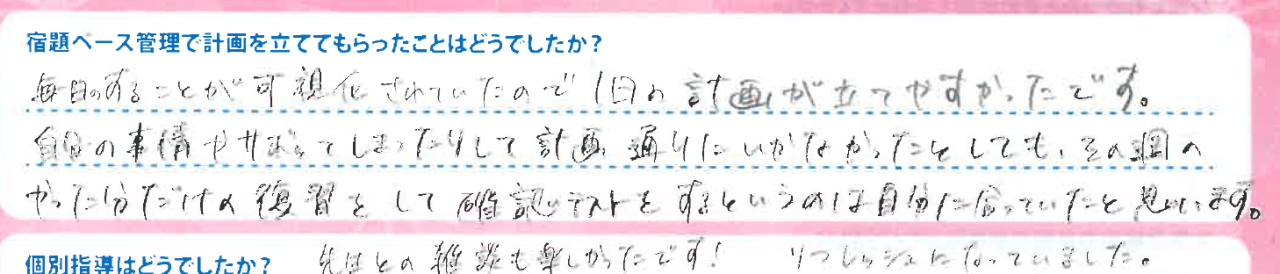 宿題ペース管理で計画を立ててもらったことはどうでしたか？
毎日のすることが可視化されていたので1日の計画が立てやすかったです。
自分の事情やサボってしまったりして計画通りにいかなかったとしても、その週の
やった分だけの復習をして確認テストをするというのは自分に合っていたと思います。
個別指導はどうでしたか？ 先生との雑談も楽しかったです！ リフレッシュになっていました。